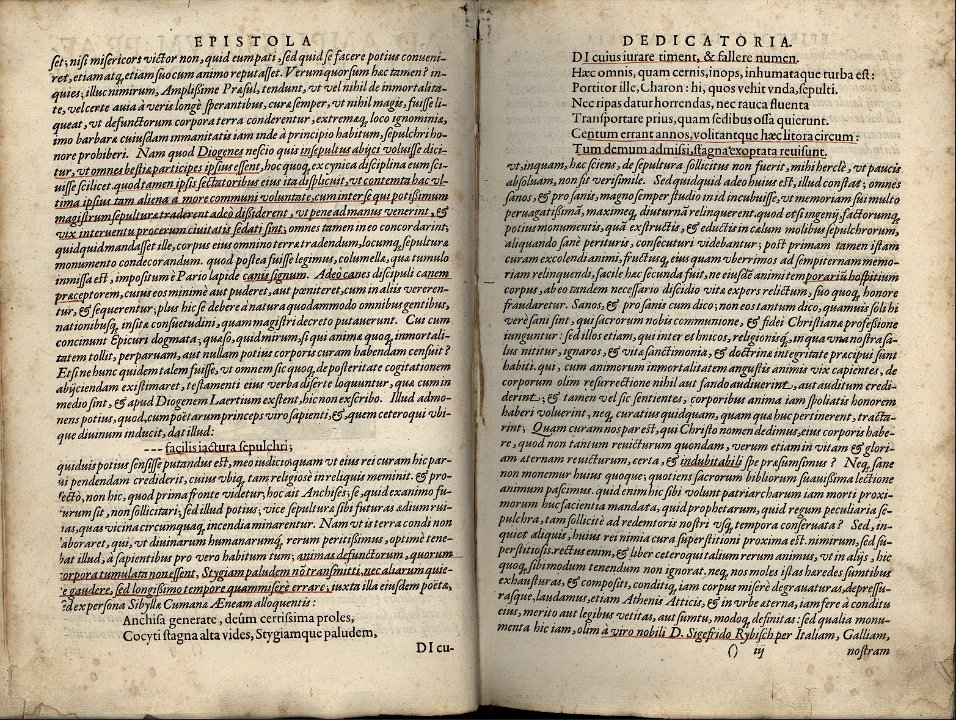 EPISTOLA
set; nisi misericors victor non, quid eum pati, sed quid se facere potius conueni-
ret, etiam atq, etiam suo cum animo reputasset. Verum quorsum hæc tamen? in-
quies; illuc nimirum, Amplißime Præsul, tendunt, vt vel nihil de immortalita-
te, vel certe auia à veris longè sperantibus, curæ semper, vt nihil magis, fuisse li-
queat, vt defunctorum corpora terra conderentur, extremæq, loco ignominiæ,
imo barbaræ cuiusdam inmanitatis iam inde à principio habitum, sepulchri ho-
nore prohiberi. Nam quod Diogenes nescio quis insepultus abijci voluisse dici-
tur, vt omnes bestiæ participes ipsius essent, hoc quoq, ex cynica disciplina eum sci-
uisse scilicet quod tamen ipsis sectatoribus eius ita displicuit, vt contemta hac vl-
tima ipsius tam aliena a more communi voluntate, cum inter se qui potißimum
magistrum sepulturæ traderent adeò dißiderent, vt pene ad manus venerint, &
vix interuentu procerum ciuitatis sedati sint; omnes tamen in eo concordarint,
quidquid mandasset ille, corpus eius omnino terræ tradendum, locumq, sepulturæ
monumento condecorandum. quod postea fuisse legimus, columellæ, qua tumulo
inmissa est, impositum è Pario lapide canis signum. Adeò canes discipuli canem
præceptorem, cuius eos minimè aut puderet, aut pœniteret, cum in aliis vereren-
tur, & sequerentur; plus hic se debere à natura quodammodo omnibus gentibus,
nationibusq, insitæ consuetudini, quam magistri decreto putauerunt. Cui cum
concinunt Epicuri dogmata; quæso, quid mirum, si qui animæ quoq, inmortali-
tatem tollit, perparuam, aut nullam potius corporis curam habendam censuit?
Etsi ne hunc quidem talem fuisse, vt omnem sic quoq, de posteritate cogitationem
abijciendam existimaret, testamenti eius verba diserte loquuntur, quæ cum in
medio sint, & apud Diogenem Laertium exstent, hic non exscribo. Illud admo-
nens potius, quod, cum poëtarum princeps viro sapienti, & quem ceteroqui vbi-
que diuinum inducit, dat illud:
--- facilis iactura sepulchri;
quid uis potius sensisse putandus est, meo iudicio quam vt eius rei curam hic par-
ui pendendam crediderit, cuius vbiq, tam religiosè in reliquis meminit. & pro-
fectò, non hic, quod prima fronte videtur, hoc ait Anchises; se, quid exanimo fu-
urum sit, non sollicitari; sed illud potius; vice sepulturæ sibi futuras ædium rui-
nas, quas vicina circumquaq, incendia minarentur. Nam vt is terra condi non
laboraret, qui, vt diuinarum humanarumq, rerum peritißimus, optime tene-
bat illud, à sapientibus pro vero habitum tum; animas defunctorum, quorum
corpora tumulata non essent, Stygiam paludem nō transmitti, nec aliarum quie-
te gaudere, sed longißimo tempore quam miserè errare, iuxta illa eiusdem poëtæ,
ed ex persona Sibyllæ Cumanæ Æneam alloquentis:
Anchisa generate, deûm certissima proles,
Cocyti stagna alta vides, Stygiamque paludem,
DI cu-
DEDICATORIA.
DI cuius iurare timent, & fallere numen.
Hæc omnis, quam cernis, inops, inhumataque turba est:
Portitor ille, Charon: hi, quos vehit vnda, sepulti.
Nec ripas datur horrendas, nec rauca fluenta
Transportare prius, quam sedibus ossa quierunt.
Centum errant annos, volitantque hæc litora circum:
Tum demum admissi, stagna exoptata reuisunt.
vt, inquam, hæc sciens, de sepultura sollicitus non fuerit, mihi herclè, vt paucis
absoluam, non sit verisimile. Sed quidquid adeo huius est, illud constat; omnes
sanos, & pro sanis, magno semper studio in id incubuisse, vt memoriam sui multo
peruagatißimã, maximeq, diuturnã relinquerent. quod etsi ingenij, factorumq,
potius monumentis, quã exstructis, & eductis in cælum molibus sepulchrorum,
aliquando sanè perituris, consecuturi videbantur; post primam tamen istam
curam excolendi animi, fructusq, eius quam vberrimos ad sempiternam memo-
riam relinquendi, facile hæc secunda fuit, ne eiusdē animi temporarium hospitium
corpus, ab eo tandem necessario discidio vitæ expers relictum, suo quoq, honore
fraudaretur. Sanos, & pro sanis cum dico; non eos tantum dico, quamuis soli hi
verè sani sint, qui sacrorum nobis communione, & fidei Christianæ professione
iunguntur: sed illos etiam, qui inter ethnicos, religionisq, in qua vna nostra sa-
lus nititur, ignaros, & vitæ sanctimonia, & doctrinæ integritate præcipui sunt
habiti. qui, cum animorum inmortalitatem angustis animis vix capientes, de
corporum olim resurrectione nihil aut fando audiuerint, aut auditum credi-
derint; & tamen vel sic sentientes, corporibus anima iam spoliatis honorem
haberi voluerint, neq, curatius quidquam, quam quæ huc pertinerent, tracta-
rint; Quam curam nos par est, qui Christo nomen dedimus, eius corporis habe-
re, quod non tantum reuicturum quondam, verum etiam in vitam & glori-
am æternam reuicturum, certa, & indubitabili spe præsumsimus? Neq, sane
non monemur huius quoque; quotiens sacrorum bibliorum suauißima lectione
animum pascimus. quid enim hic sibi volunt patriarcharum iam morti proxi-
morum huc facientia mandata, quid prophetarum, quid regum peculiaria se-
pulchra, tam sollicitè ad redemtoris nostri vsq, tempora conseruata? Sed, in-
quiet aliquis, huius rei nimia cura superstitioni proxima est. nimirum, sed su-
perstitiosis. rectus enim, & liber ceteroqui talium rerum animus, vt in alijs, hic
quoq, sibi modum tenendum non ignorat. neq, nos moles istas hæredes sumtibus
exhausturas, & compositi, conditiq, iam corpus miserè degrauaturas, depressu-
rasque, laudamus, etiam Athenis Atticis, & in vrbe æterna, iam fere à conditu
eius, merito aut legibus vetitas, aut sumtu, modoq, definitas: sed qualia monu-
menta hic iam, olim a viro nobili D. Sigefrido Rybisch per Italiam, Galliam,
() iij nostram